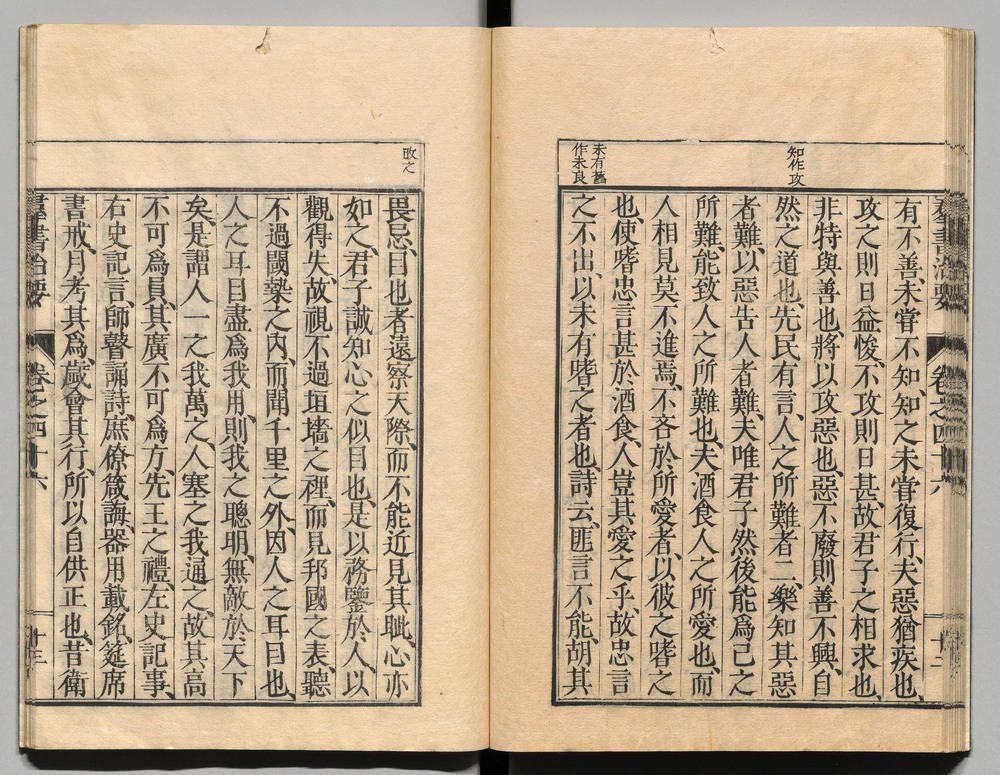 羣書治要 卷之四十六 十二
知作攻
未有舊
作未良
有不善、未甞不知、知之未甞復行、夫惡猶疾也、
攻之則日益悛、不攻則日甚、故君子之相求也、
非特與善也、將以攻惡也、惡不廢則善不興、自
然之道也、先民有言、人之所難者二、樂知其惡
者難、以惡吿人者難、夫唯君子然後能爲己之
所難、能致人之所難也、夫酒食人之所愛也、而
人相見莫不進焉、不吝於所愛者、以彼之嗜之
也、使嗜忠言甚於酒食、人豈其愛之乎、故忠言
之不出、以未有嗜之者也、詩云、匪言不能、胡其
攺之
畏忌、目也者遠察天際、而不能近見其眦、心亦
如之、君子誠知心之似目也、是以務鑒於人、以
觀得失、故視不過垣墻之裡、而見邦國之表、聽
不過閾槷之內、而聞千里之外、因人之耳目也、
人之耳目盡爲我用、則我之聰明、無敵於天下
矣、是謂人一之我萬之、人塞之我通之、故其高
不可爲員、其廣不可爲方、先王之禮、左史記事、
右史記言、師瞽誦詩、庶僚箴誨、器用載銘、筵席
書戒、月考其爲、歲會其行、所以自供正也、昔衞
羣書治要 卷之四十六 十三